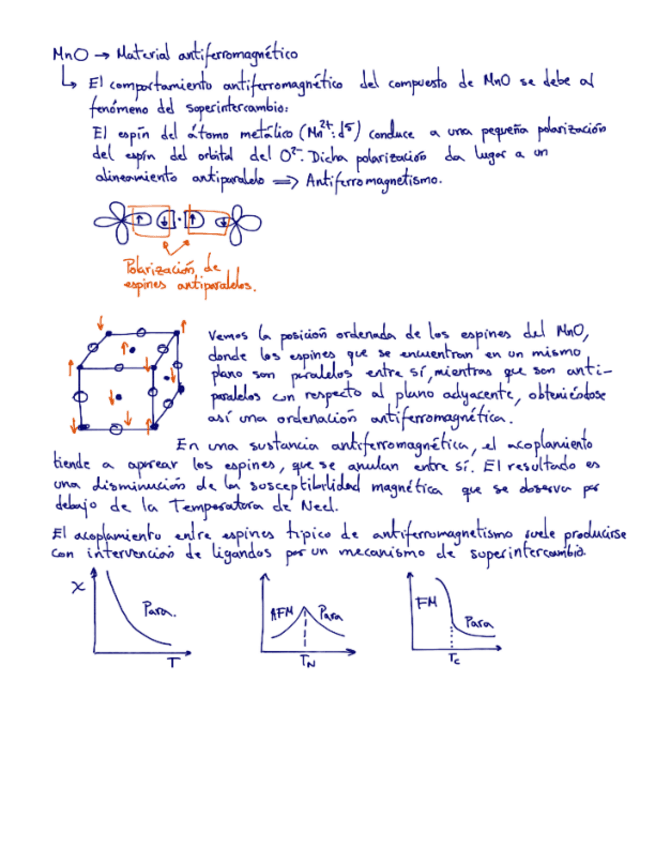 MnO → Material antiferromagnético
↳ El comportamiento antiferromagnético del compuesto de MnO se debe al
fenómeno del superintercambio:
El espín del átomo metálico (Mn²⁺: d⁵) conduce a una pequeña polarización
del espín del orbital del O²⁻. Dicha polarización da lugar a un
alineamiento antiparalelo ⟹ Antiferromagnetismo.
Polarización de
espines antiparalelos.
Vemos la posición ordenada de los espines del MnO,
donde los espines que se encuentran en un mismo
plano son paralelos entre sí, mientras que son anti-
paralelos con respecto al plano adyacente, obteniéndose
así una ordenación antiferromagnética.
En una sustancia antiferromagnética, el acoplamiento
tiende a aparear los espines, que se anulan entre sí. El resultado es
una disminución de la susceptibilidad magnética que se observa por
debajo de la Temperatura de Neel.
El acoplamiento entre espines típico de antiferromagnetismo suele producirse
con intervención de ligandos por un mecanismo de superintercambio.
χ Para. T
AFM Para T_N
FM Para T_C